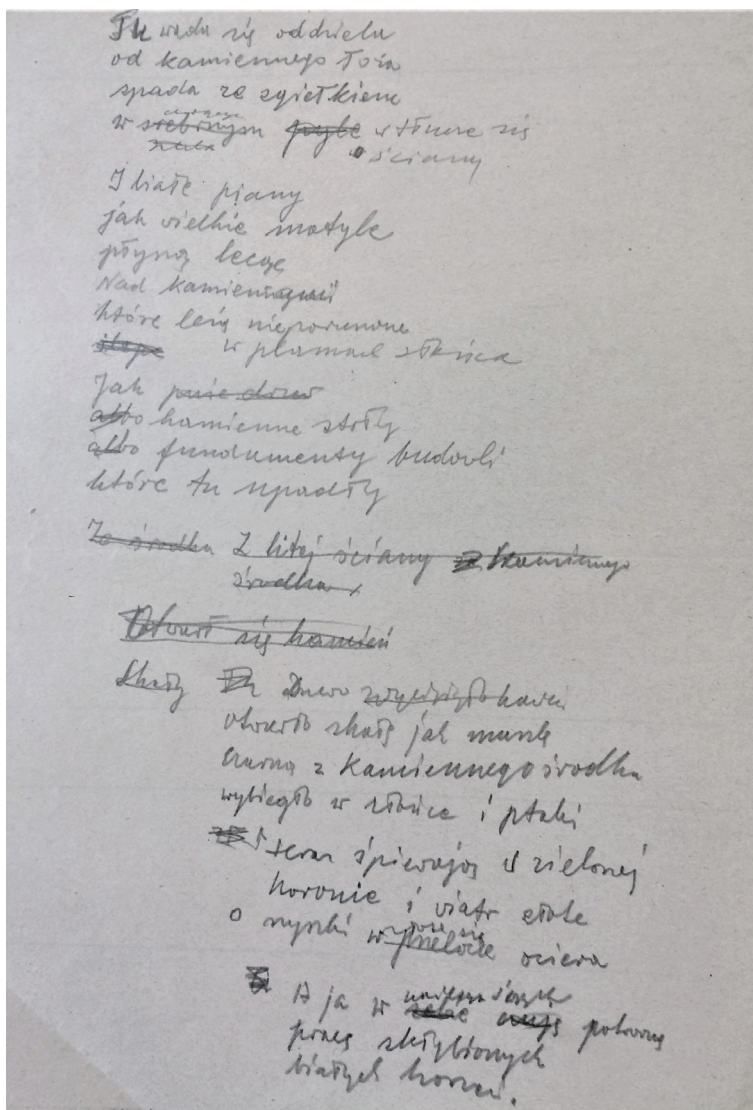 Tu woda się oddziela
od kamiennego łoża
spada ze zgiełkiem
w srebrnym pyle w słońce się
o ściany
I białe piany
jak wielkie motyle
płyną lecąc
Nad kamieniami
które leżą nieporuszone
w plamach słońca
Jak pnie drzew
albo kamienne stoły
albo fundamenty budowli
które tu upadły
Ze środka Z litej ściany z kamiennego
środka
Otwarł się kamień
Skały Drzewo zwyciężyło kamień
otwarło skałę jak muszlę
czarną z kamiennego środka
wybiegło w słońce i ptaki
teraz śpiewają w zielonej
koronie i wiatr
o w przelocie ociera
A ja w
pracę skłębionych
białych korzeni.